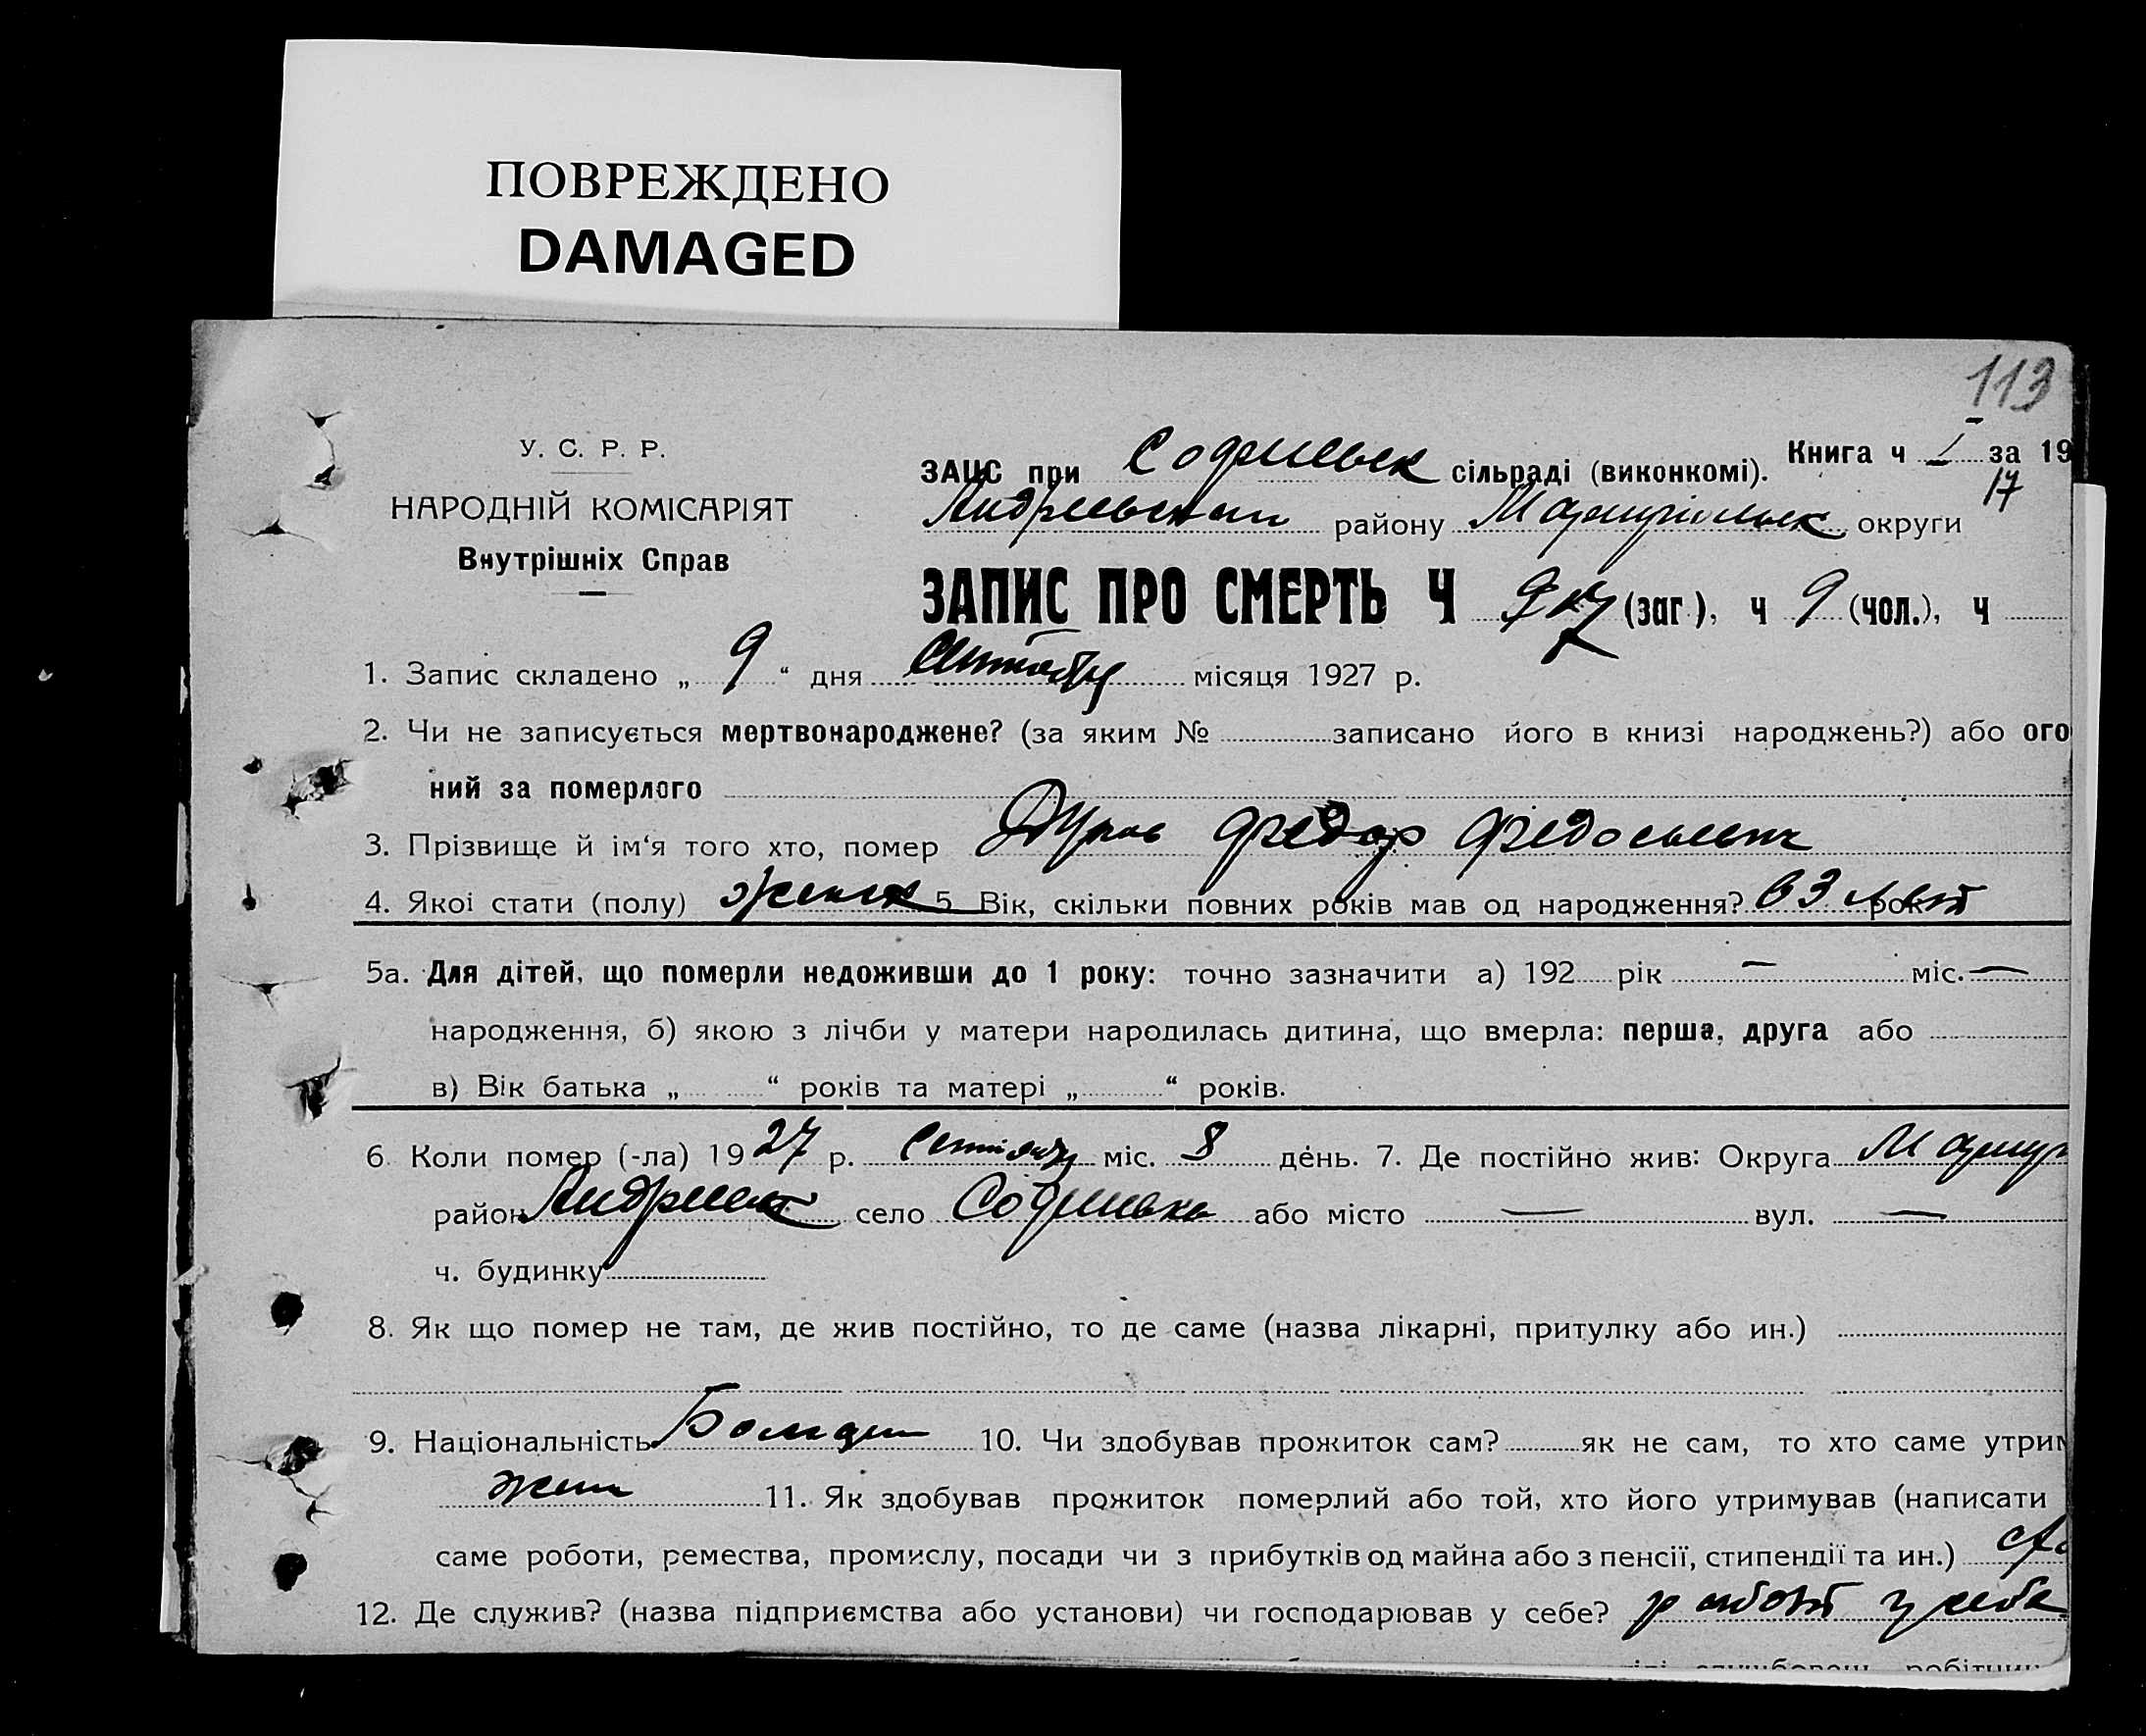 ПОВРЕЖДЕНО
DAMAGED
113
У. С. Р. Р.
НАРОДНІЙ КОМІСАРІЯТ
Внутрішніх Справ
ЗАЦС при сільраді (виконкомі). Книга ч I за 19
17
району Мариупольск округи
ЗАПИС ПРО СМЕРТЬ Ч (заг.), ч 9 (чол.), ч
1. Запис складено „ 9 “ дня Сентября місяця 1927 р.
2. Чи не записується мертвонароджене? (за яким № записано його в книзі народжень?) або ого
ний за померлого
3. Прізвище й ім‘я того хто, помер Федор Федосьевич
4. Якої стати (полу) 5. Вік, скільки повних років мав од народження? 63 лет рок
5а. Для дітей, що померли недоживши до 1 року: точно зазначити а) 192 рік — міс. —
народження, б) якою з лічби у матери народилась дитина, що вмерла: перша, друга або
в) Вік батька „ “ років та матері „ “ років.
6. Коли помер (-ла) 1927 р. Сентябр міс. 8 день. 7. Де постійно жив: Округа Мариуп
район село або місто — вул. —
ч. будинку
8. Як що помер не там, де жив постійно, то де саме (назва лікарні, притулку або ин.)
9. Національність 10. Чи здобував прожиток сам? як не сам, то хто саме утрим
11. Як здобував прожиток померлий або той, хто його утримував (написати
саме роботи, ремества, промислу, посади чи з прибутків од майна або з пенсії, стипендії та ин.)
12. Де служив? (назва підприємства або установи) чи господарював у себе? работ у себе